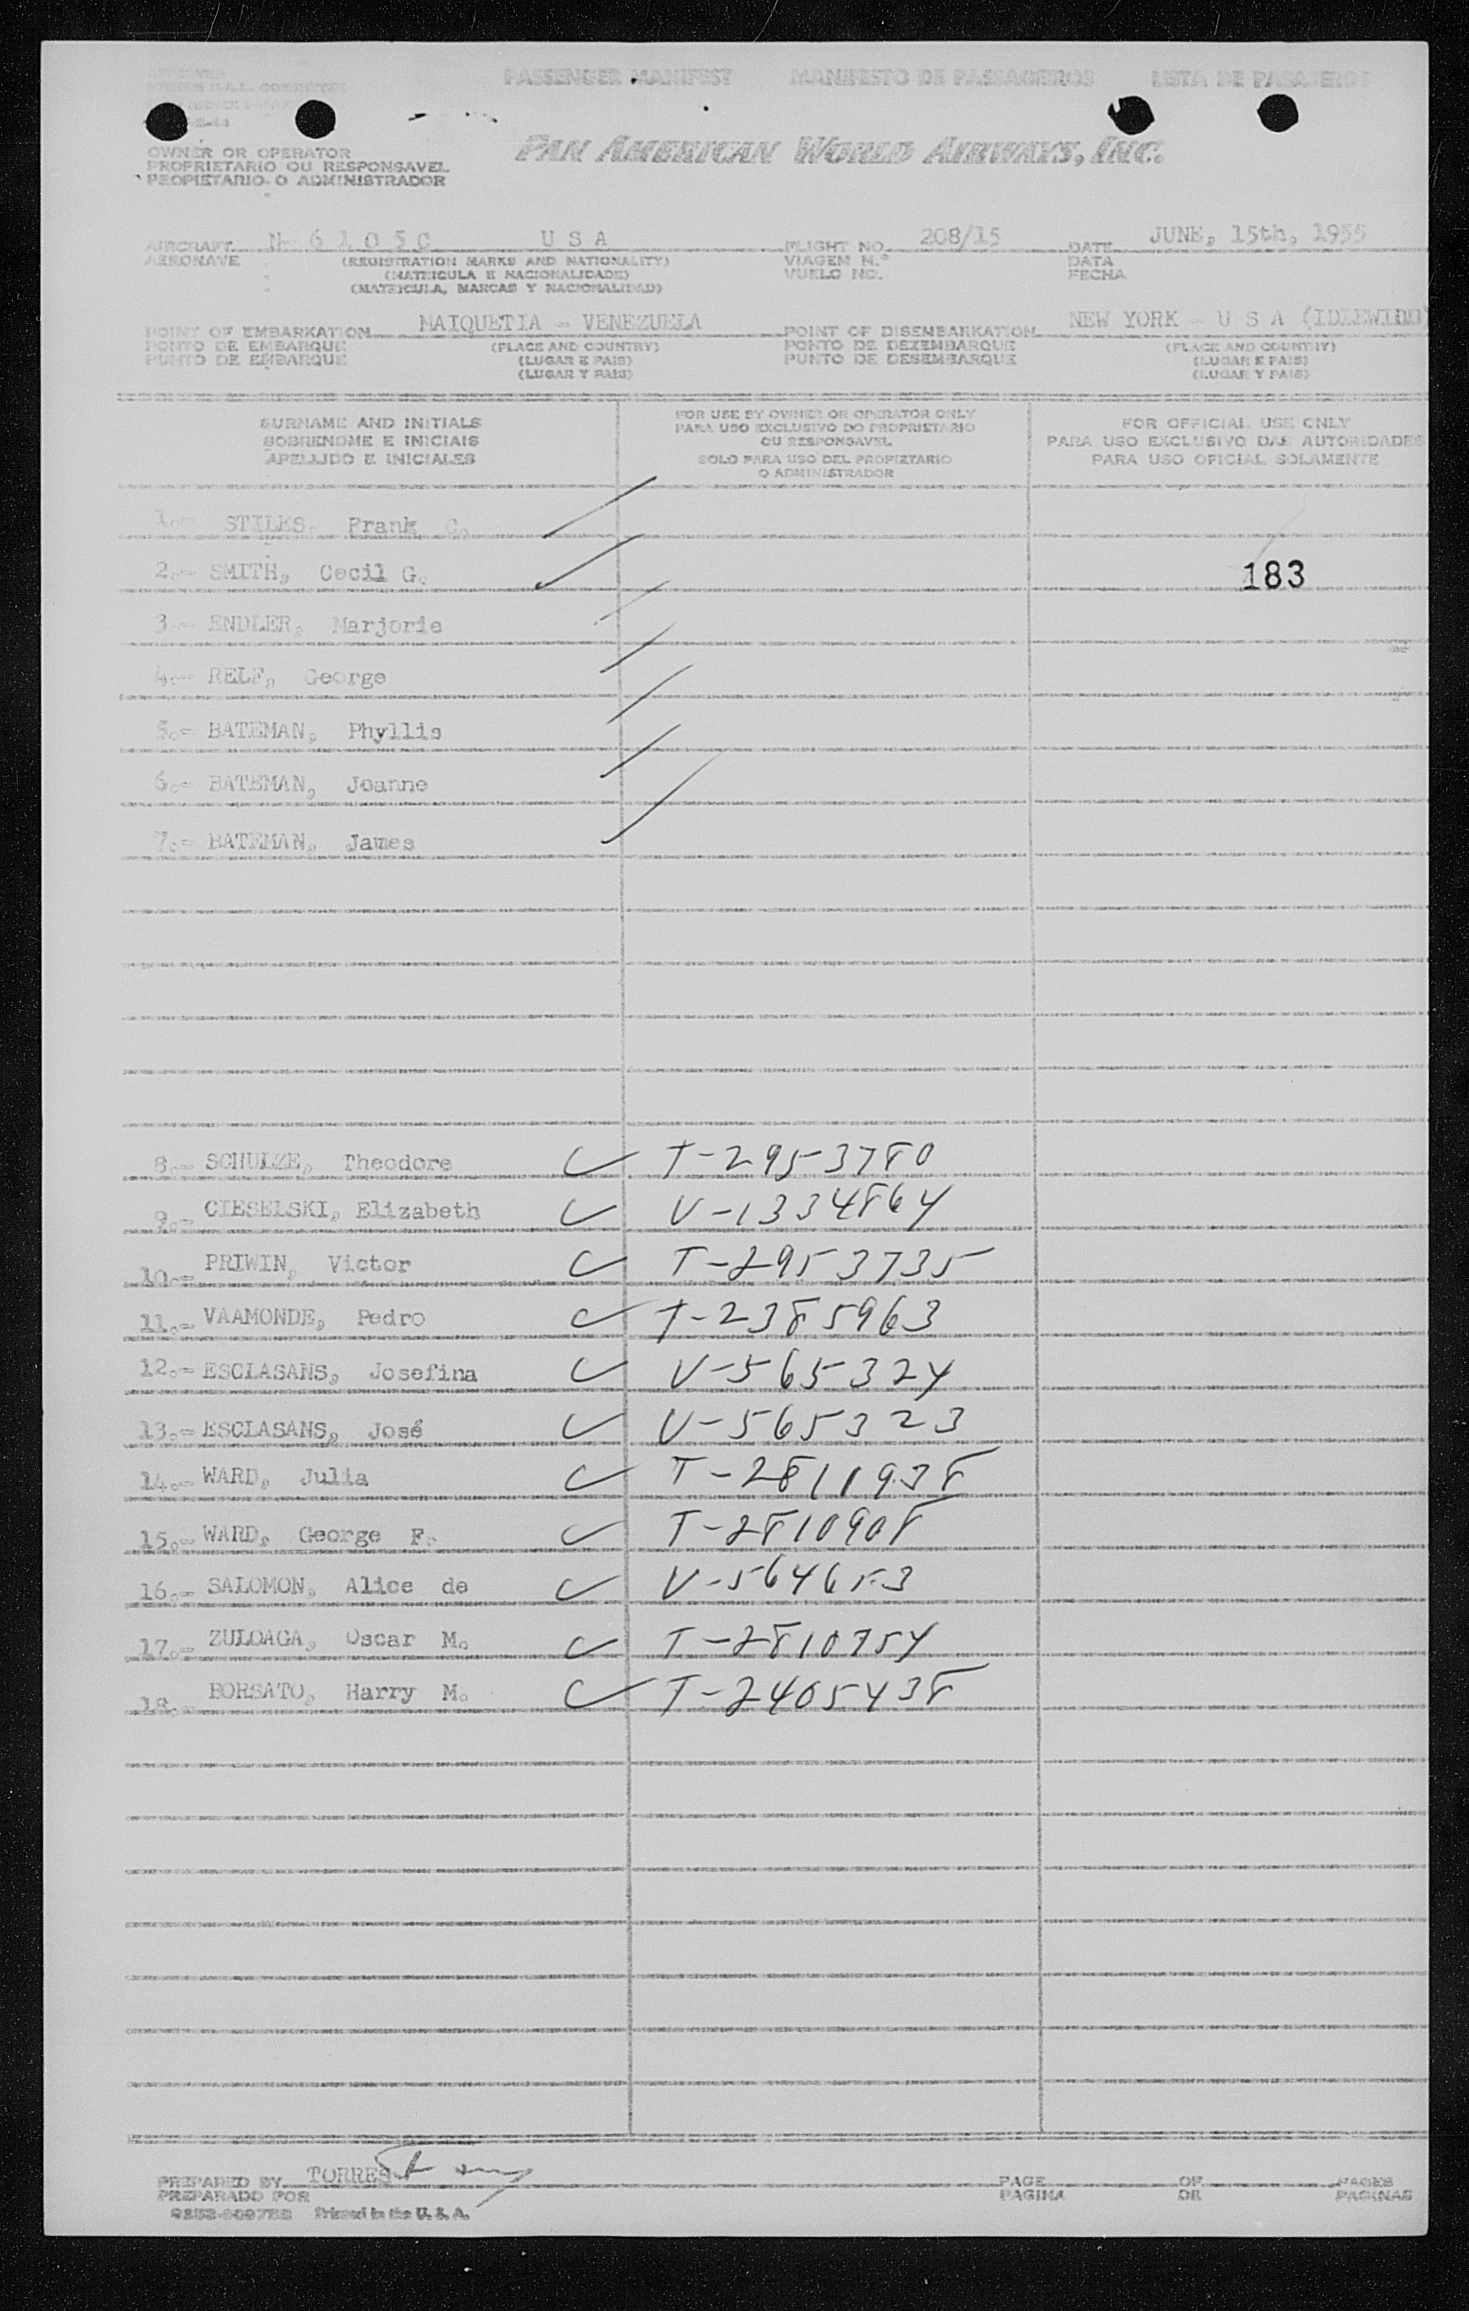 PASSENGER MANIFEST MANIFESTO DE PASSAGEIROS LISTA DE PASAJEROS
OWNER OR OPERATOR
PROPRIETARIO OU RESPONSAVEL
PROPIETARIO O ADMINISTRADOR
PAN AMERICAN WORLD AIRWAYS, INC.
AIRCRAFT N- 6 1 0 5 C U S A FLIGHT NO. 208/15 DATE JUNE, 15th, 1955
AERONAVE (REGISTRATION MARKS AND NATIONALITY) VIAGEM N.º DATA
(MATRICULA E NACIONALIDADE) VUELO NO. FECHA
(MATRICULA, MARCAS Y NACIONALIDAD)
POINT OF EMBARKATION MAIQUETIA - VENEZUELA POINT OF DISEMBARKATION NEW YORK - U S A (IDLEWILD)
PONTO DE EMBARQUE (PLACE AND COUNTRY) PONTO DE DEZEMBARQUE (PLACE AND COUNTRY)
PUNTO DE EMBARQUE (LUGAR E PAIS) PUNTO DE DESEMBARQUE (LUGAR E PAIS)
(LUGAR Y PAIS) (LUGAR Y PAIS)
SURNAME AND INITIALS
SOBRENOME E INICIAIS
APELLIDO E INICIALES
FOR USE BY OWNER OR OPERATOR ONLY
PARA USO EXCLUSIVO DO PROPRIETARIO
OU RESPONSAVEL
SOLO PARA USO DEL PROPIETARIO
O ADMINISTRADOR
FOR OFFICIAL USE ONLY
PARA USO EXCLUSIVO DAS AUTORIDADES
PARA USO OFICIAL SOLAMENTE
1.- STILES, Frank C.
2.- SMITH, Cecil G. 183
3.- ENDLER, Marjorie
4.- RELF, George
5.- BATEMAN, Phyllis
6.- BATEMAN, Joanne
7.- BATEMAN, James
8.- SCHULZE, Theodore T-2953780
9.- CIESELSKI, Elizabeth V-1334864
10.- PRIWIN, Victor T-2953735
11.- VAAMONDE, Pedro T-2385963
12.- ESCLASANS, Josefina V-565324
13.- ESCLASANS, José V-565323
14.- WARD, Julia T-2811938
15.- WARD, George F. T-2810908
16.- SALOMON, Alice de V-564653
17.- ZULOAGA, Oscar M. T-2810754
18.- BORSATO, Harry M. T-2405438
PREPARED BY TORRES PAGE OF PAGES
PREPARADO POR PAGINA DE PAGINAS
Printed in the U. S. A.